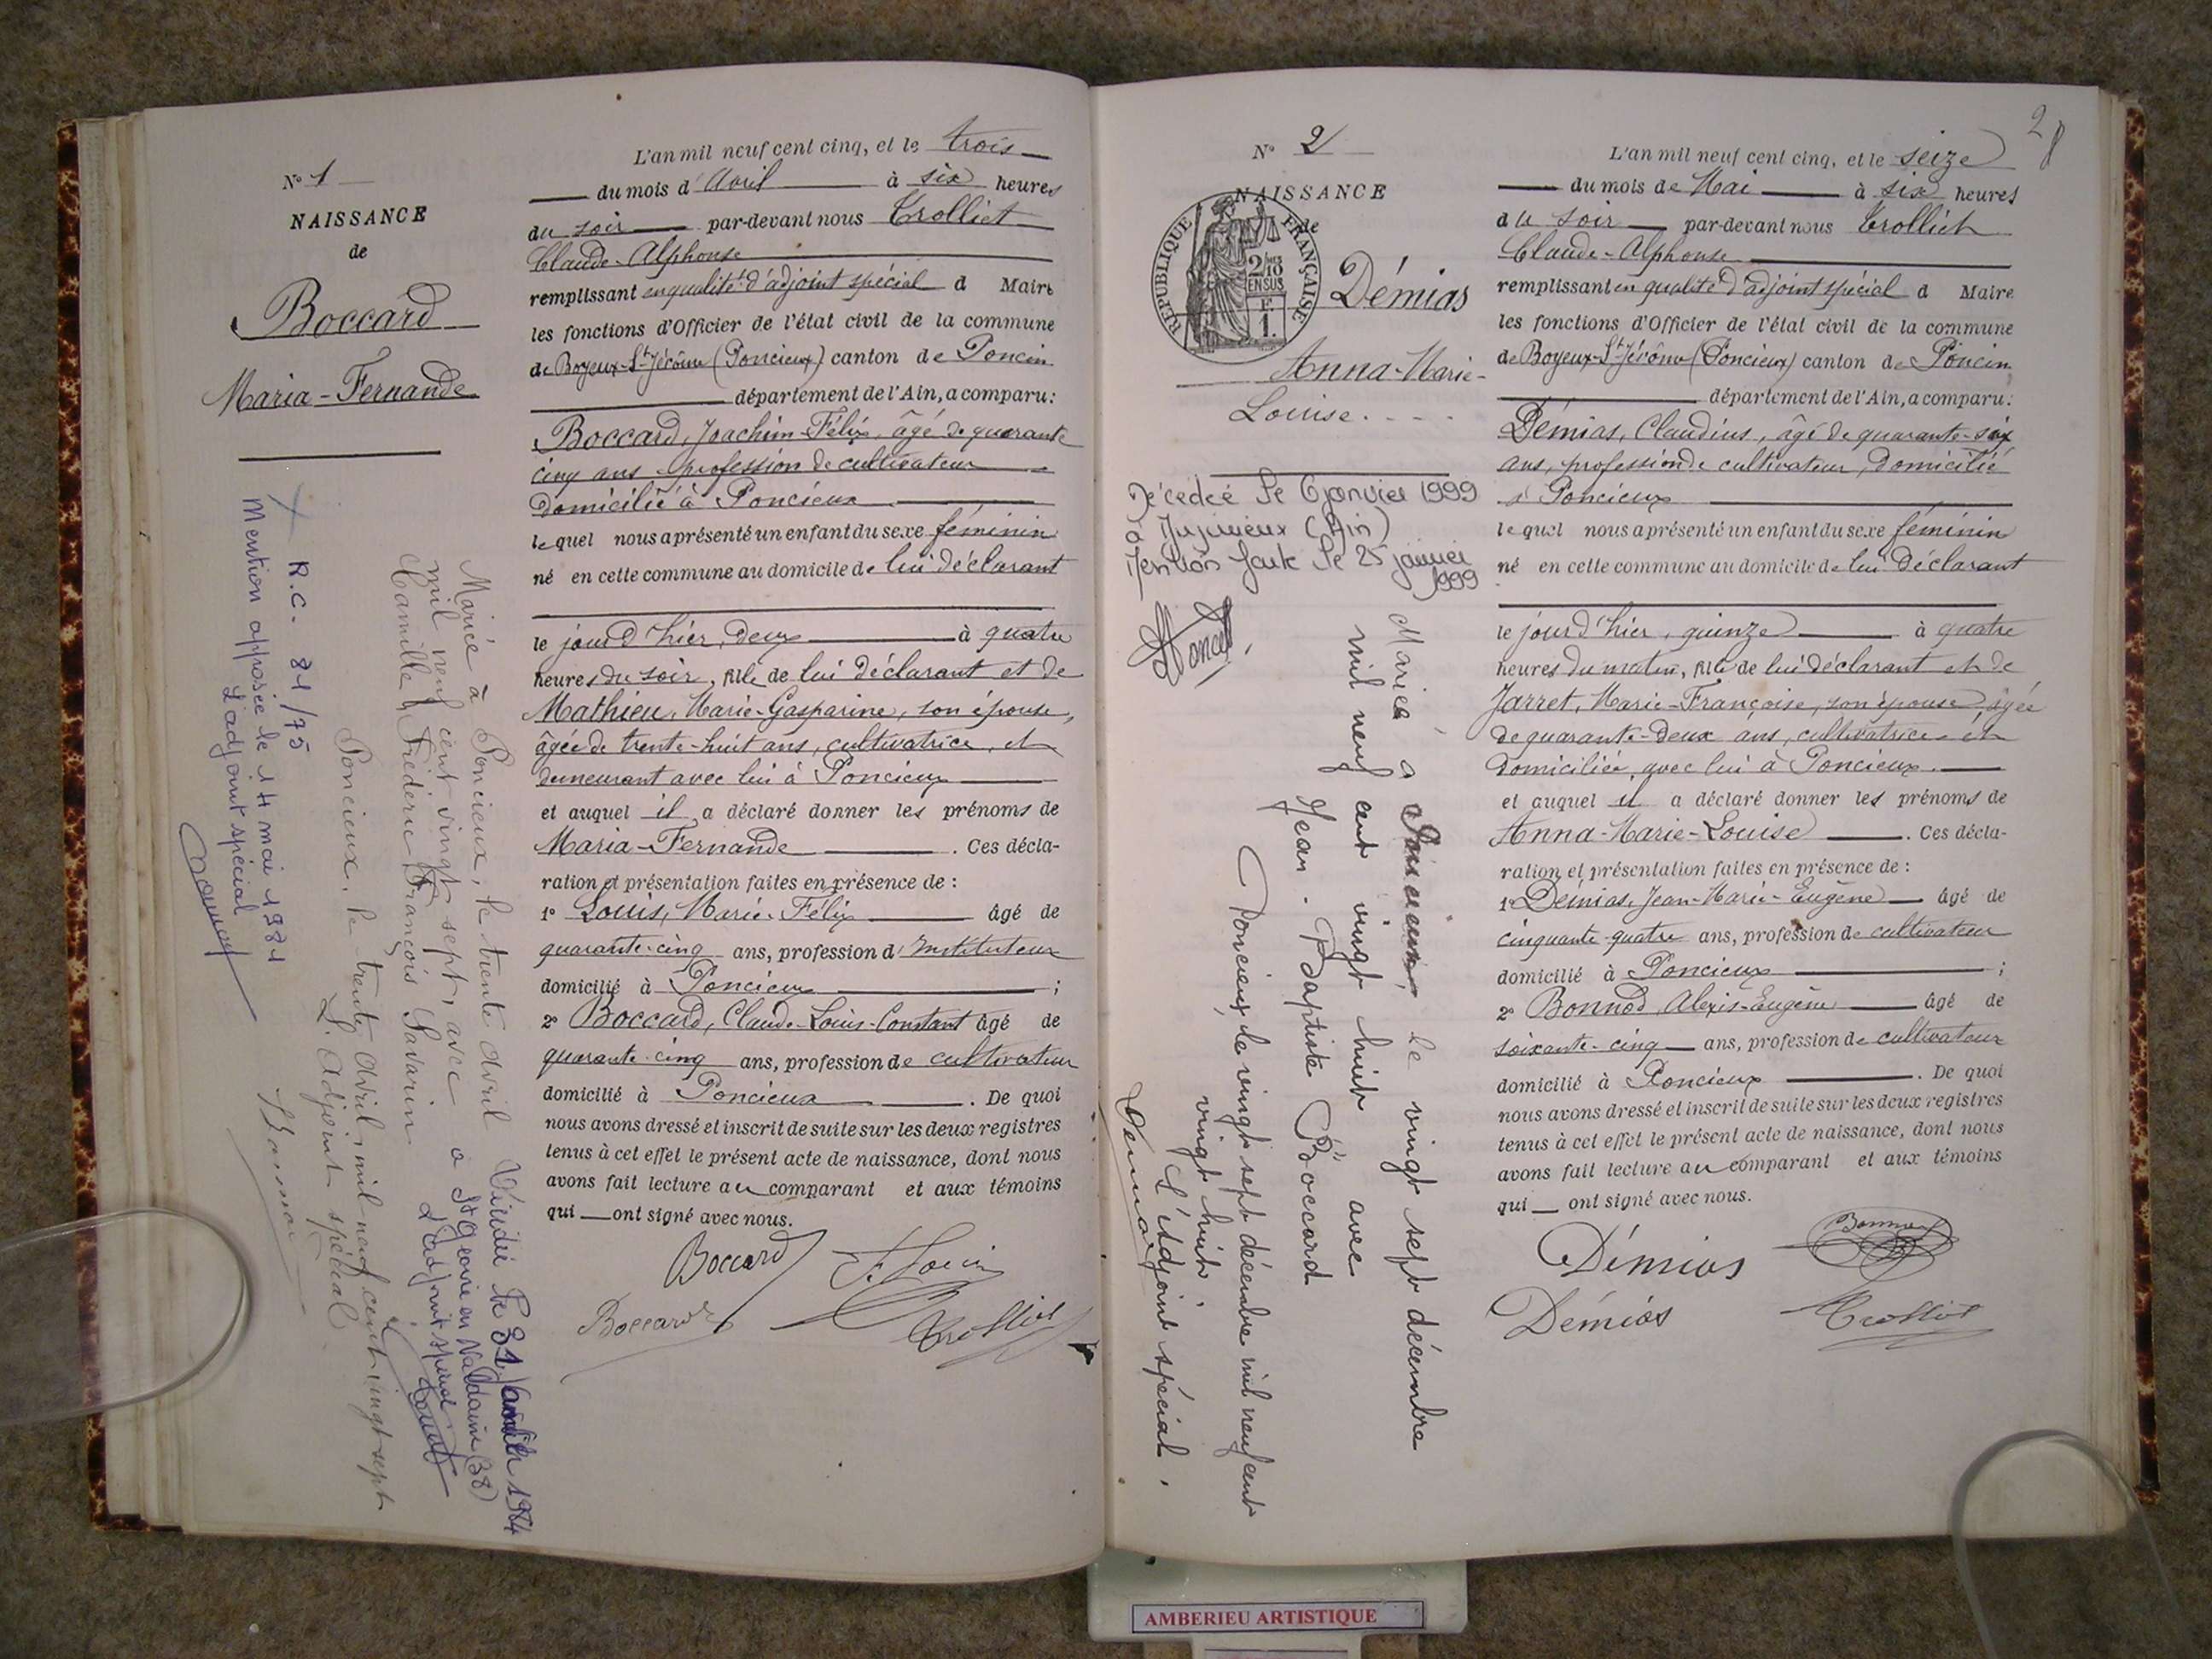 N° 1
NAISSANCE
de
Boccard
Maria-Fernande
L'an mil neuf cent cinq, et le trois
du mois d'Avril à six heures
du soir par-devant nous Trolliet
Claude-Alphonse
remplissant en qualité d'adjoint spécial d Maire
les fonctions d'Officier de l'état civil de la commune
de Boyeux-St-Jérôme (Poncieux) canton de Poncin
département de l'Ain, a comparu:
Boccard, Joachim-Félix, âgé de quarante
cinq ans, profession de cultivateur
domicilié à Poncieux
lequel nous a présenté un enfant du sexe féminin
né en cette commune au domicile de lui déclarant
le jour d'hier, deux à quatre
heures du soir, fille de lui déclarant et de
Mathieu, Marie-Gasparine, son épouse,
âgée de trente-huit ans, cultivatrice, et
demeurant avec lui à Poncieux
et auquel il a déclaré donner les prénoms de
Maria-Fernande . Ces décla-
ration et présentation faites en présence de :
1° Louis, Marie-Félix âgé de
quarante-cinq ans, profession d'Instituteur
domicilié à Poncieux ;
2° Boccard, Claude-Louis-Constant âgé de
quarante-cinq ans, profession de cultivateur
domicilié à Poncieux . De quoi
nous avons dressé et inscrit de suite sur les deux registres
tenus à cet effet le présent acte de naissance, dont nous
avons fait lecture au comparant et aux témoins
qui ont signé avec nous.
Boccard F. Louis
Boccard Trolliet
Mariée à Poncieux, le trente avril
mil neuf cent vingt sept, avec
Camille Frédéric François Savarin
Poncieux, le trente avril mil neuf cent vingt sept
L'Adjoint spécial
X R.C. 81/75
Mention apposée le 14 mai 1981
L'adjoint spécial
le 31 1984
à St Geoire en Valdaine (38)
L'adjoint spécial
N° 2
NAISSANCE
de
RÉPUBLIQUE FRANÇAISE
2/10 EN SUS
F.
1.
Démias
Anna-Marie-
Louise
Décédée le 6 janvier 1999
à Jujurieux (Ain)
Mention faite le 25 janvier
1999
Mariée à Poncieux, le vingt sept décembre
mil neuf cent vingt huit avec
Jean-Baptiste Boccard
Poncieux, le vingt sept décembre mil neuf cent
vingt huit
L'Adjoint spécial,
28
L'an mil neuf cent cinq, et le seize
du mois de Mai à six heures
du soir par-devant nous Trolliet
Claude-Alphonse
remplissant en qualité d'adjoint spécial d Maire
les fonctions d'Officier de l'état civil de la commune
de Boyeux-St-Jérôme (Poncieux) canton de Poncin
département de l'Ain, a comparu:
Démias, Claudius, âgé de quarante-six
ans, profession de cultivateur, domicilié
à Poncieux
lequel nous a présenté un enfant du sexe féminin
né en cette commune au domicile de lui déclarant
le jour d'hier, quinze à quatre
heures du matin, fille de lui déclarant et de
Jarret, Marie-Françoise, son épouse, âgée
de quarante-deux ans, cultivatrice et
domiciliée avec lui à Poncieux.
et auquel il a déclaré donner les prénoms de
Anna-Marie-Louise . Ces décla-
ration et présentation faites en présence de :
1° Démias, Jean-Marie-Eugène âgé de
cinquante-quatre ans, profession de cultivateur
domicilié à Poncieux ;
2° Bonnod, Alexis-Eugène âgé de
soixante-cinq ans, profession de cultivateur
domicilié à Poncieux . De quoi
nous avons dressé et inscrit de suite sur les deux registres
tenus à cet effet le présent acte de naissance, dont nous
avons fait lecture au comparant et aux témoins
qui ont signé avec nous.
Démias
Démias Trolliet
AMBERIEU ARTISTIQUE